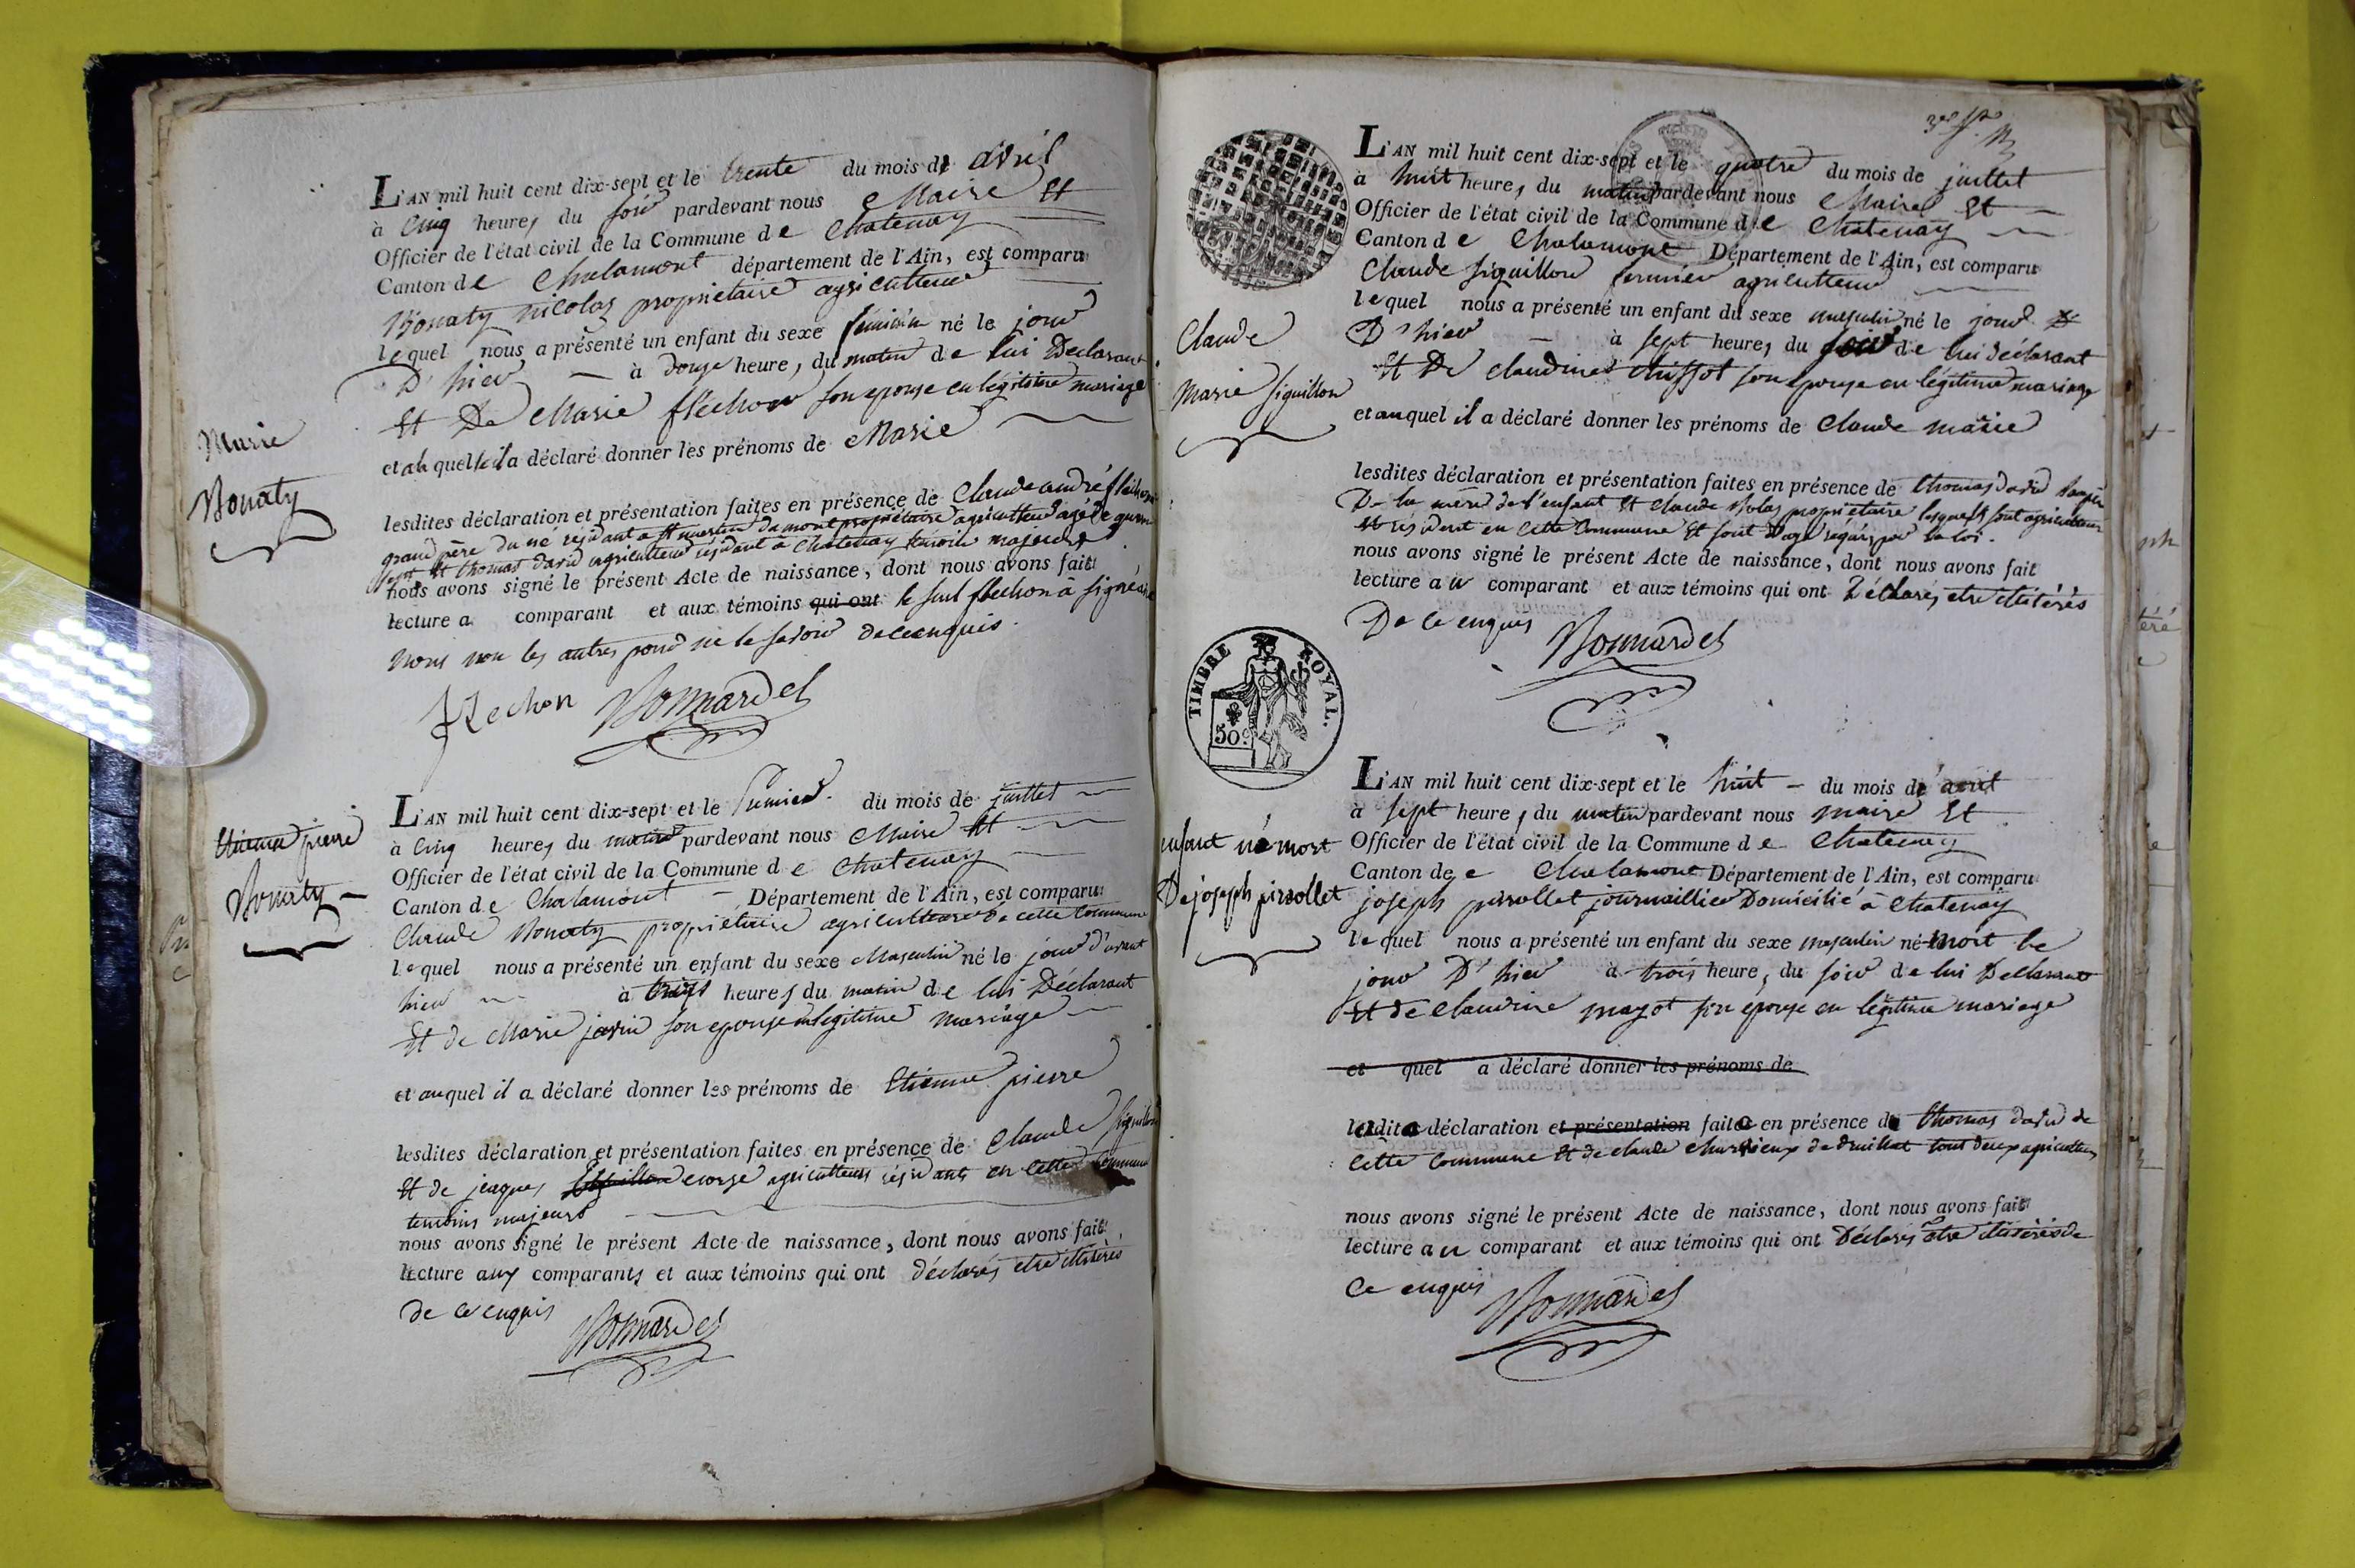 L'AN mil huit cent dix-sept et le trente du mois de avril
à cinq heures du soir pardevant nous Maire Et
Officier de l'état civil de la Commune de Chatenay
Canton de Chalamont département de l'Ain, est comparu
Bonaty nicolas propriétaire agriculteur
lequel nous a présenté un enfant du sexe féminin né le jour
D'hier à douze heure, du matin de lui Déclarant
Et De Marie fléchon son epouse en légitime mariage
et ah quelle il a déclaré donner les prénoms de Marie
Marie
Bonaty
lesdites déclaration et présentation faites en présence de Claude andré fléchon
grand père du né résidant a St martin du mont propriétaire agriculteur agé de
sept Et thomas david agriculteur résidant à Chatenay temoin majeurs
nous avons signé le présent Acte de naissance, dont nous avons fait
lecture a comparant et aux témoins qui ont le seul flechon à signé
nous non les autres pour ne le savoir de ce enquis.
Flechon Bonnardel
L'AN mil huit cent dix-sept et le Premier du mois de juillet
à cinq heures du matin pardevant nous Maire Et
Officier de l'état civil de la Commune de Chatenay
Canton de Chalamont Département de l'Ain, est comparu
Claude Bonaty propriétaire agriculteur de cette Commune
lequel nous a présenté un enfant du sexe Masculin né le jour d'avant
hier à trois heures du matin de lui Déclarant
Et de Marie javin son epouse en légitime mariage
et auquel il a déclaré donner les prénoms de Etienne pierre
Etienne pierre
Bonaty
lesdites déclaration et présentation faites en présence de Claude Siguillon
Et de jacques george agriculteurs résidants en cette Commune
temoins majeurs
nous avons signé le présent Acte de naissance, dont nous avons fait
lecture aux comparants et aux témoins qui ont déclarés etre illitérés
de ce enquis Bonnardel
L'AN mil huit cent dix-sept et le quatre du mois de juillet
à huit heures du matin pardevant nous Maire Et
Officier de l'état civil de la Commune de Chatenay
Canton de Chalamont Département de l'Ain, est comparu
Claude Siguillon fermier agriculteur
lequel nous a présenté un enfant du sexe masculin né le jour
D'hier à sept heures du soir de lui déclarant
Et De claudine chiffot son epouse en légitime mariage
et auquel il a déclaré donner les prénoms de Claude marie
Claude
Marie Siguillon
lesdites déclaration et présentation faites en présence de thomas david
De la mère de l'enfant Et Claude Nolas propriétaire lesquels sont agriculteurs
et résident en cette Commune Et sont D'age réquis par la loi.
nous avons signé le présent Acte de naissance, dont nous avons fait
lecture au comparant et aux témoins qui ont Déclarés etre illitérés
De ce enquis Bonnardel
TIMBRE ROYAL.
50c
L'AN mil huit cent dix-sept et le huit du mois d'aout
à sept heures du matin pardevant nous maire Et
Officier de l'état civil de la Commune de Chatenay
Canton de Chalamont Département de l'Ain, est comparu
joseph pirrollet journaillier Domicilié à Chatenay
lequel nous a présenté un enfant du sexe masculin né mort le
jour D'hier à trois heures du soir de lui Déclarant
Et de Claudine mazot son epouse en légitime mariage
et quel a déclaré donner les prénoms de
enfant né mort
De joseph pirrollet
ladite déclaration et présentation faite en présence de thomas david de
cette Commune Et de claude de druillat tout deux agriculteurs
nous avons signé le présent Acte de naissance, dont nous avons fait
lecture au comparant et aux témoins qui ont Déclarés etre illitérés de
ce enquis Bonnardel